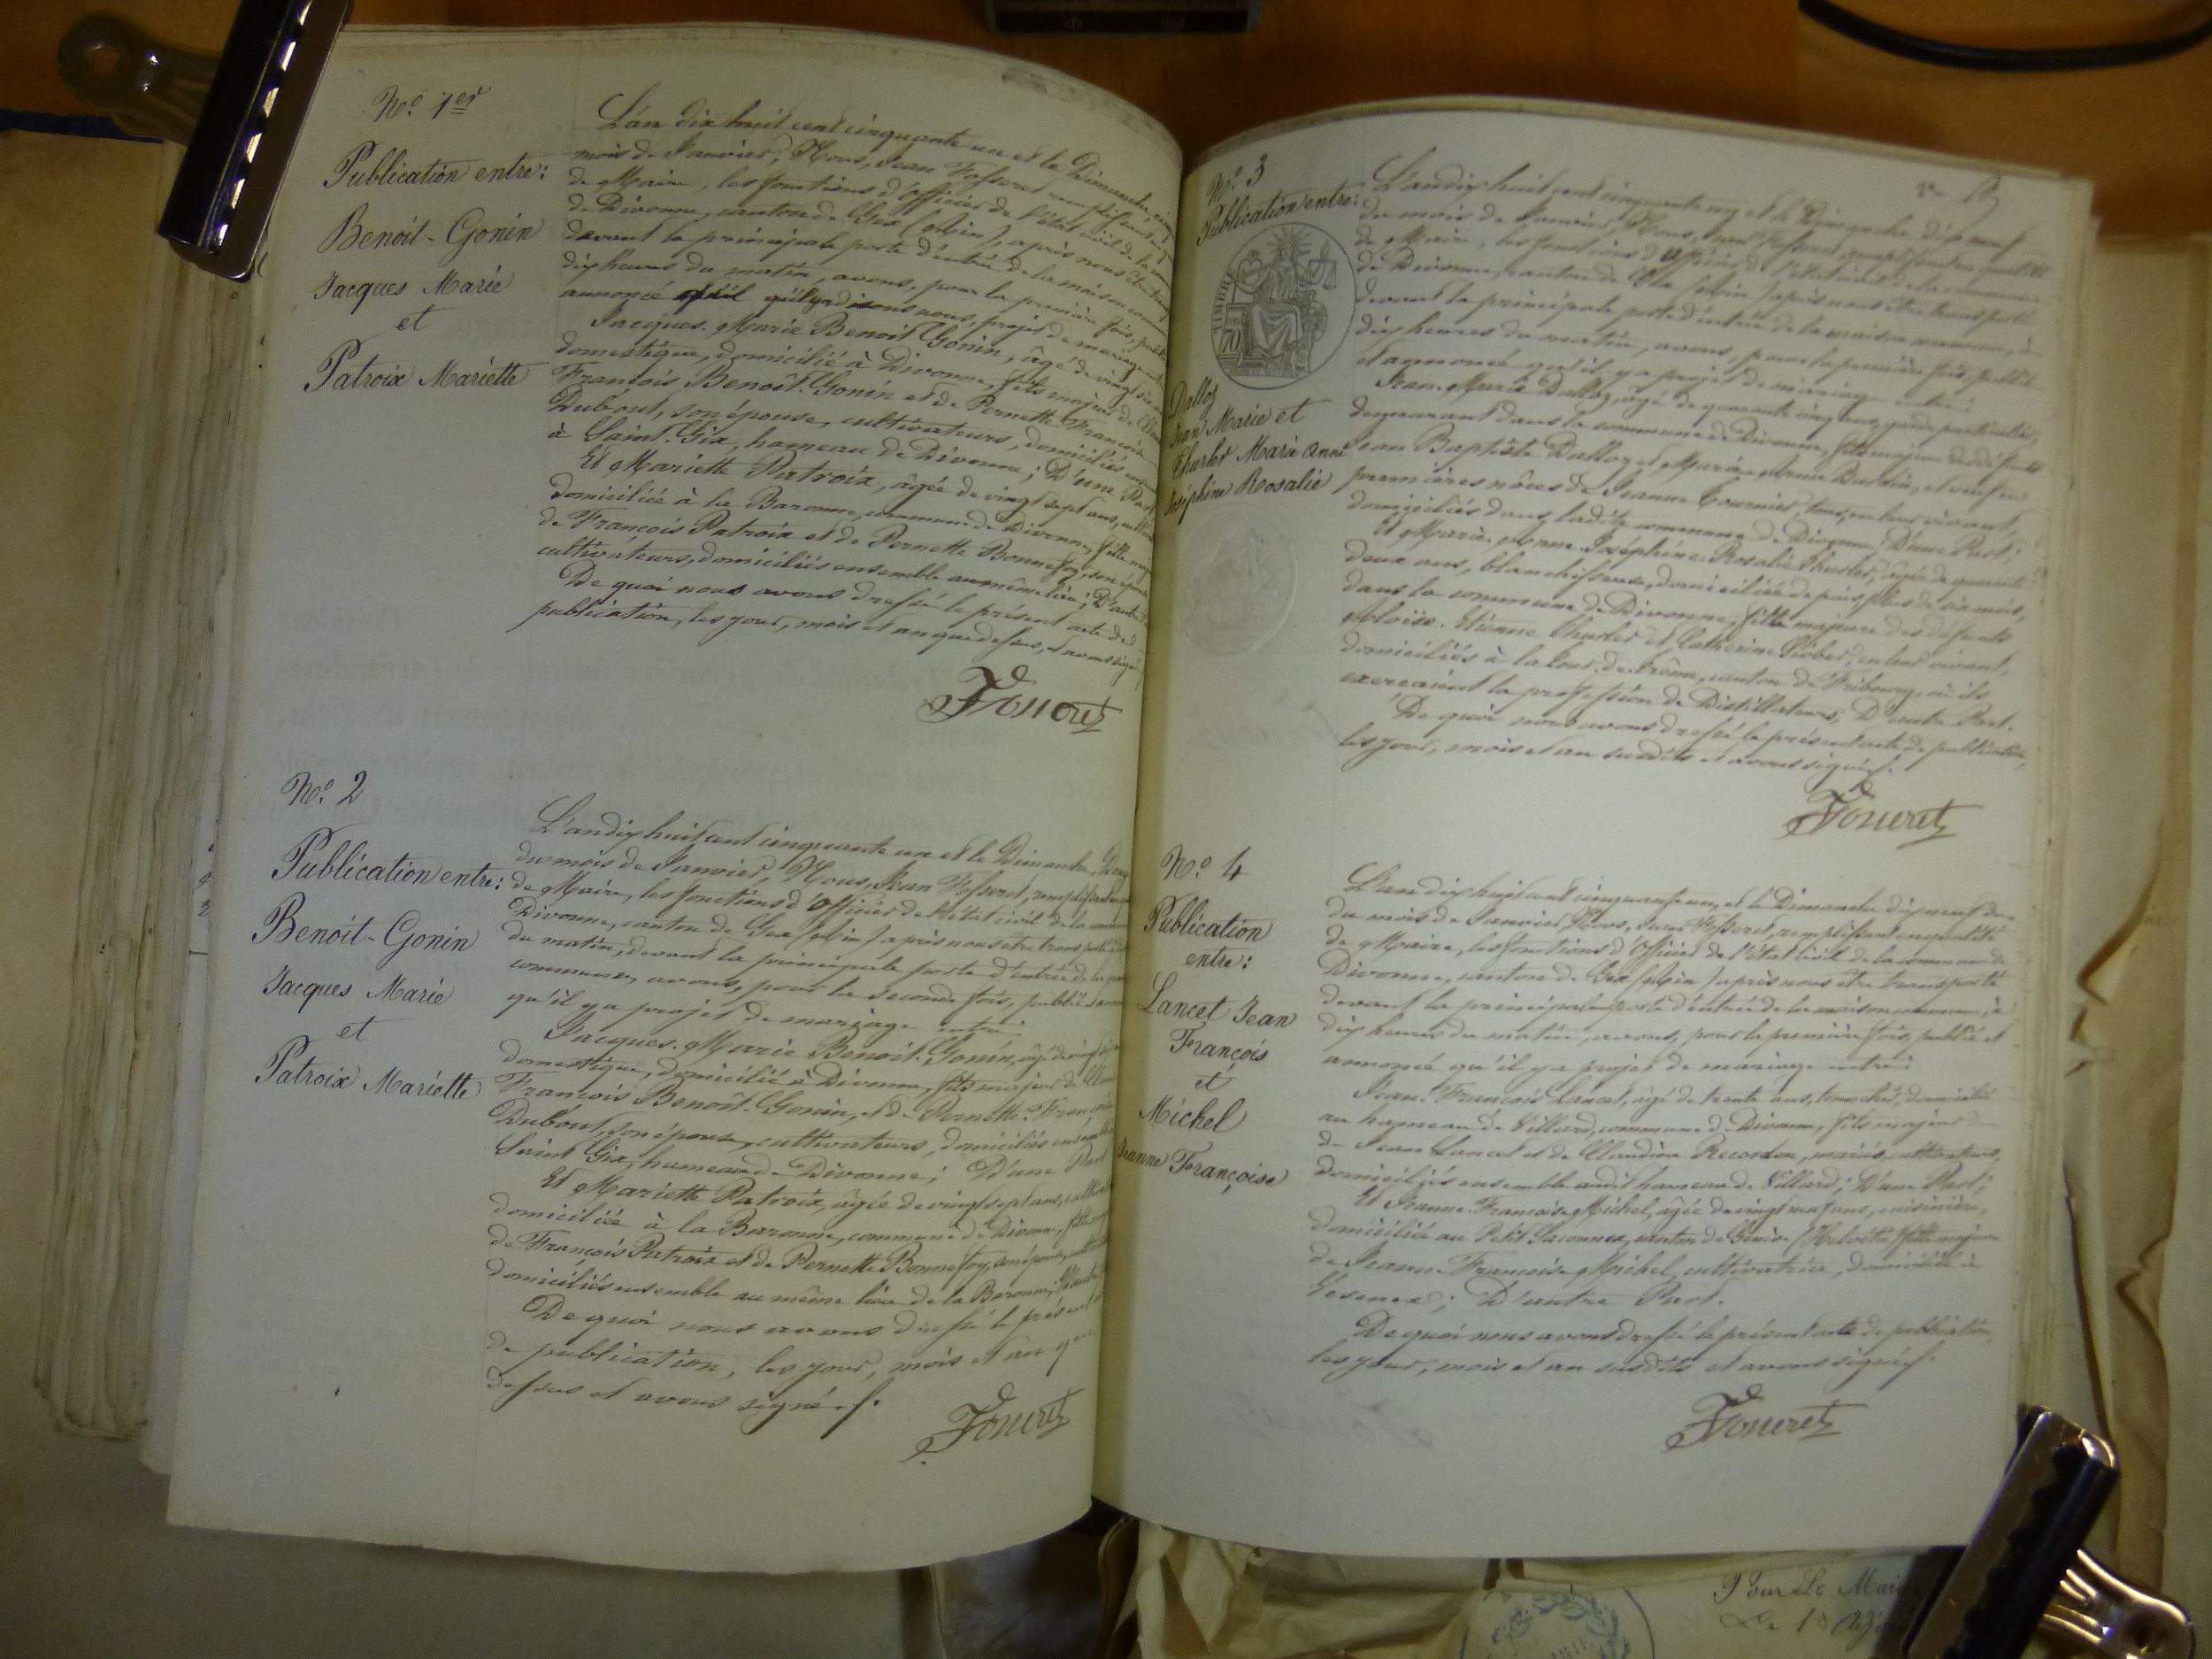 No. 1er
Publication entre:
Benoit-Gonin
Jacques Marie
et
Patroix Mariette
L'an dix huit cent cinquante un et le Dimanche, cinq
mois de Janvier, Nous, Jean Fosseret remplissant en
de Maire, les fonctions d'officier de l'état civil de la
de Divonne, canton de Gex (Ain), après nous être
devant la principale porte d'entrée de la maison
dix heures du matin, avons, pour la première fois, publié
annoncé qu'il y a projet de mariage
Jacques-Marie Benoit Gonin, âgé de vingt
domestique, domicilié à Divonne, fils majeur de
François Benoît-Gonin et de Pernette Françoise
Dubout, son épouse, cultivateurs, domiciliés
à Saint-Gix, hameau de Divonne; D'une Part
Et Mariette Patroix, âgée de vingt sept ans,
domiciliée à la Baronne, commune de Divonne, fille
de François Patroix et de Pernette Bonnefoy, son épouse
cultivateurs, domiciliés ensemble au même lieu; D'autre
De quoi nous avons dressé le présent acte de
publication, les jour, mois et an que dessus, et avons signé
No. 2
Publication entre:
Benoit-Gonin
Jacques Marie
et
Patroix Mariette
L'an dix huit cent cinquante un et le Dimanche,
du mois de Janvier, Nous, Jean Fosseret, remplissant
de Maire, les fonctions d'Officier de l'état civil de la
Divonne, canton de Gex (Ain) après nous être transporté
du matin, devant la principale porte d'entrée de la
commune, avons, pour la seconde fois, publié
qu'il y a projet de mariage entre:
Jacques-Marie Benoit-Gonin, âgé de vingt
domestique, domicilié à Divonne, fils majeur de
François Benoît-Gonin, et de Pernette-Françoise
Dubout, son épouse, cultivateurs, domiciliés ensemble
Saint Gix, hameau de Divonne; D'une Part
Et Mariette Patroix, âgée de vingt sept ans,
domiciliée à la Baronne, commune de Divonne, fille
de François Patroix et de Pernette Bonnefoy, son épouse,
domiciliés ensemble au même lieu de la Baronne;
De quoi nous avons dressé le présent
de publication, les jour, mois et an que
dessus et avons signé.
No. 3
Publication entre:
TIMBRE
70
Dalloz
Jean Marie et
Charles Marie Anne
Joséphine Rosalie
L'an dix huit cent cinquante un et le Dimanche dix neuf
du mois de Janvier, Nous, Jean Fosseret, remplissant en qualité
de Maire, les fonctions d'Officier de l'état civil de la commune
de Divonne, canton de Gex (Ain) après nous être transporté
devant la principale porte d'entrée de la maison commune, à
dix heures du matin, avons, pour la première fois, publié
et annoncé qu'il y a projet de mariage entre:
Jean-Marie Dalloz, âgé de quarante cinq ans, garde particulier,
demeurant dans la commune de Divonne, fils majeur des défunts
Jean Baptiste Dalloz et Marie Anne et veuf en
premières nôces de Jeanne Tournier, tous, en leur vivant,
domiciliés dans ladite commune de Divonne; D'une Part;
Et Marie Anne Joséphine Rosalie Charles, âgée de quarante
deux ans, blanchisseuse, domiciliée depuis plus de six mois,
dans la commune de Divonne, fille majeure des défunts
Etienne Charles et Catherine en leur vivant,
domiciliés à la Tour-de-Trême, canton de Fribourg, où ils
exerçaient la profession de Distillateurs; D'autre Part.
De quoi nous avons dressé le présent acte de publication,
les jour, mois et an susdits et avons signé.
No. 4
Publication
entre:
Lancet Jean
François
et
Michel
Jeanne Françoise
L'an dix huit cent cinquante un, et le Dimanche dix neuf
du mois de Janvier, Nous, Jean Fosseret, remplissant en qualité
de Maire, les fonctions d'Officier de l'état civil de la commune de
Divonne, canton de Gex (Ain) après nous être transporté
devant la principale porte d'entrée de la maison commune, à
dix heures du matin, avons, pour la première fois, publié et
annoncé qu'il y a projet de mariage entre:
Jean-François Lancet, âgé de trente ans, domicilié
au hameau de Villard, commune de Divonne, fils majeur
de Jean Lancet et de Claudine Recordon, mariés, cultivateurs,
domiciliés ensemble audit hameau de Villard; D'une Part;
Et Jeanne-Françoise Michel, âgée de vingt neuf ans, cuisinière,
domiciliée au Petit Saconnex, canton de Genève (Helvétie) fille majeure
de Jeanne Françoise Michel, cultivatrice, domiciliée à
D'autre Part.
De quoi nous avons dressé le présent acte de publication,
les jour, mois et an susdits et avons signé.
Pour Le Mai